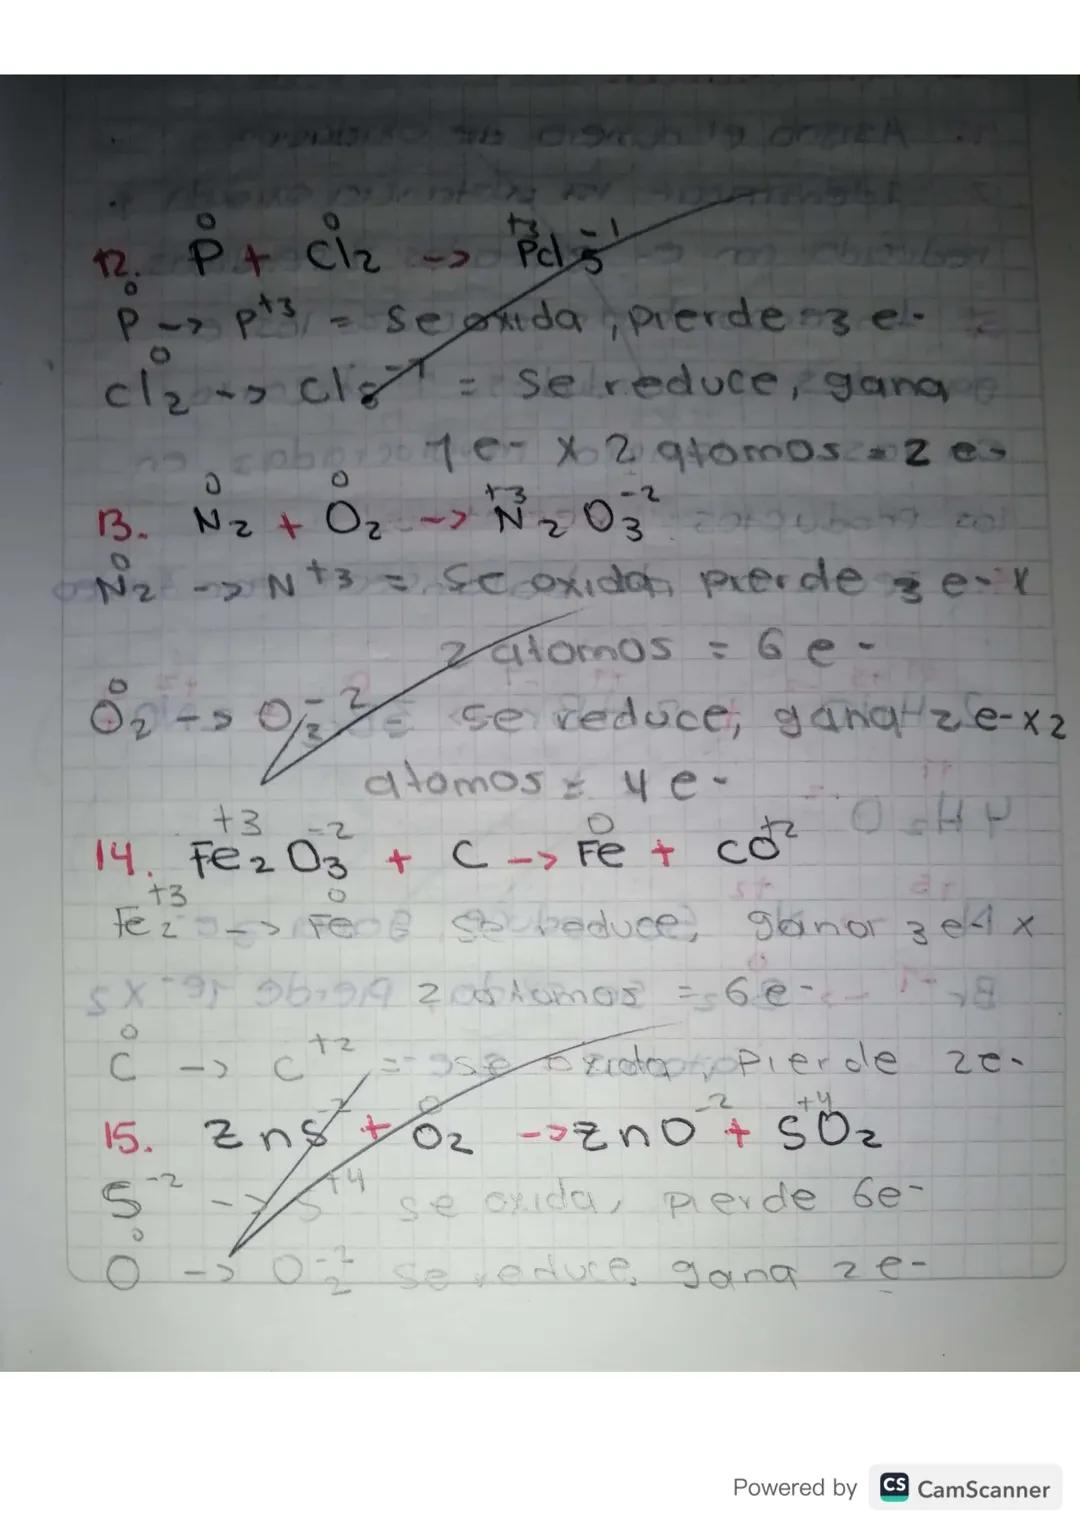 0 0 +3 -1
12. P + Cl2 -> PCl5
0
P -> P+3 = se oxida, pierde 3 e-
0
Cl2 -> Cl5-1 = se reduce, gana
1 e- x 2 atomos = 2 e-
0 0 +3 -2
13. N2 + O2 -> N2O3
0
N2 -> N+3 = se oxida, pierde 3 e- x
2 atomos = 6 e-
0
O2 -> O2-2 = se reduce, gana 2 e- x 2
atomos = 4 e-
+3 -2 0 +2
14. Fe2O3 + C -> Fe + CO
+3 0
Fe2 -> Fe se reduce, ganar 3 e- x
2 atomos = 6 e-
0
C -> C+2 = se oxida, pierde 2e-
-2 0 -2 +4
15. ZnS + O2 -> ZnO + SO2
S-2 -> S+4 se oxida, pierde 6e-
0
O -> O2-2 se reduce, gana 2e-
Powered by CS CamScanner